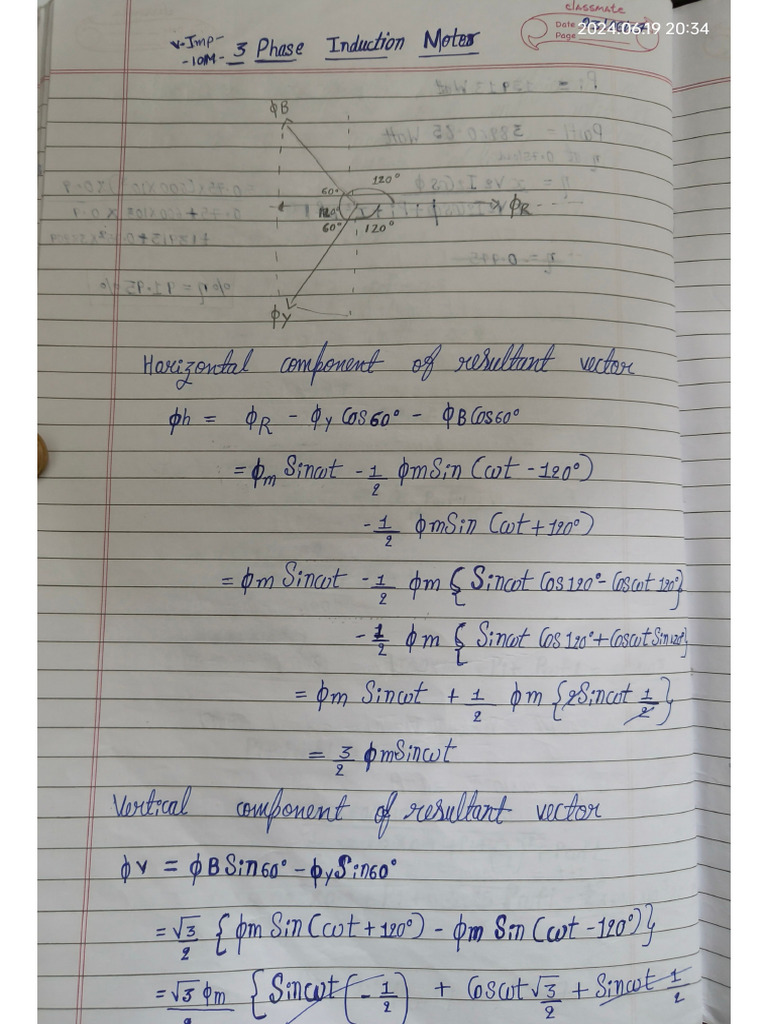 classmate
Date
Page
2024.06.19 20:34
V-Imp-
-10M-
3 Phase Induction Motor
ϕB
120°
60°
ϕR
60°
120°
ϕY
Horizontal component of resultant vector
ϕh = ϕR - ϕy Cos60° - ϕB Cos60°
= ϕm Sinωt - 1/2 ϕm Sin (ωt - 120°)
- 1/2 ϕm Sin (ωt + 120°)
= ϕm Sinωt - 1/2 ϕm { Sinωt Cos120° - Cosωt 120° }
- 1/2 ϕm { Sinωt Cos120° + Cosωt Sin120° }
= ϕm Sinωt + 1/2 ϕm { 2Sinωt 1/2 }
= 3/2 ϕm Sinωt
Vertical component of resultant vector
ϕv = ϕB Sin60° - ϕy Sin60°
= √3/2 { ϕm Sin (ωt + 120°) - ϕm Sin (ωt - 120°) }
= √3 ϕm/2 { Sinωt (-1/2) + Cosωt √3/2 + Sinωt 1/2